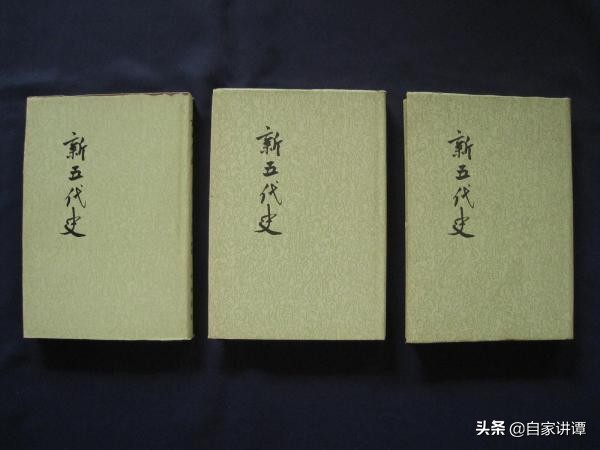 新五代史
新五代史
新五代史
头条 @自家讲谭